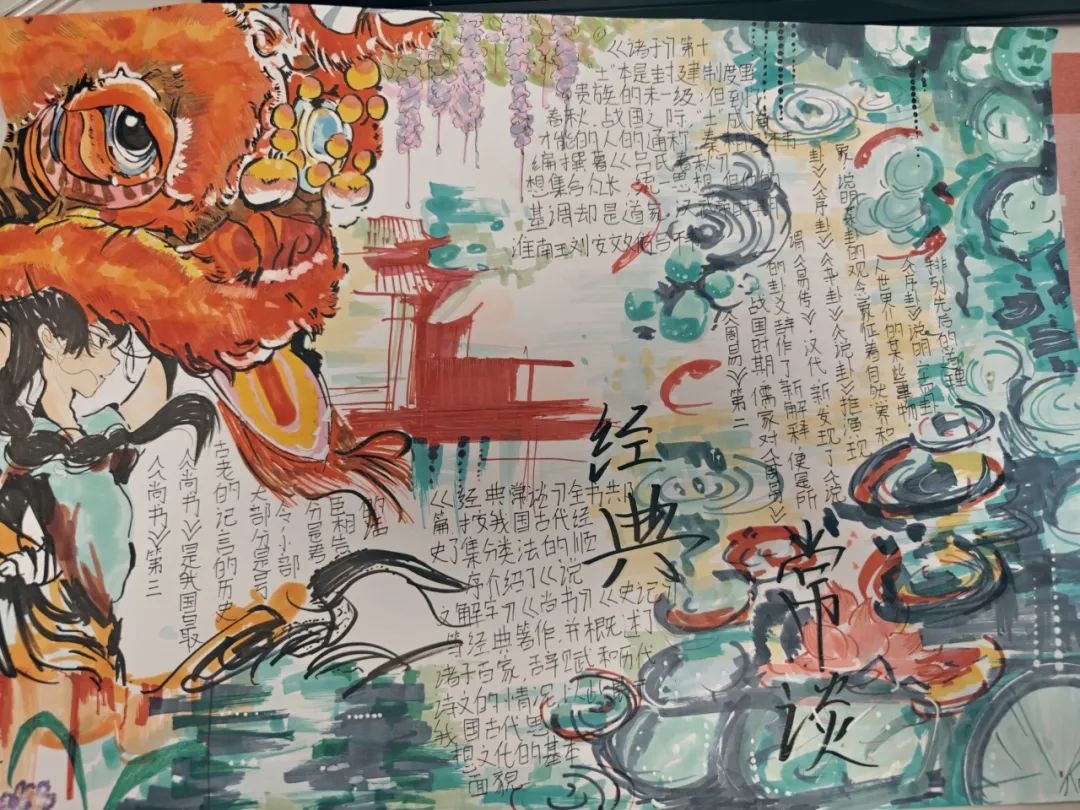 《诸子》第十
"士"本是封建制度里
贵族的末一级；但到了
春秋、战国之际，"士"成了
才能的人的通称。秦
编撰著《吕氏春秋》
想集合分长，统一思想，但
基调却是道家。汉武帝时期
淮南王刘安
家》说明
卦》《序卦》《杂卦》《说卦》推演
谓《易传》，汉代新发现了《说
的卦义辞作了新解释，便是所
战国时期儒家对《周易》
《周易》第二
排列先后的道理
《序卦》说明六十四卦
人世界的某些事物
的观念象征着自然界和
经典
常谈
《经典常谈》全书共
篇，按我国古代经
史子集分类法的顺
序介绍了《说
文解字》《尚书》《史记》
等经典著作，并概述了
诸子百家，辞赋和历代
诗文的情况，
我国古代思
想文化的基本
面貌
的话
臣相告
分是君
令，小部
大部分是号
古老的记言的历史
《尚书》是我国最
《尚书》第三